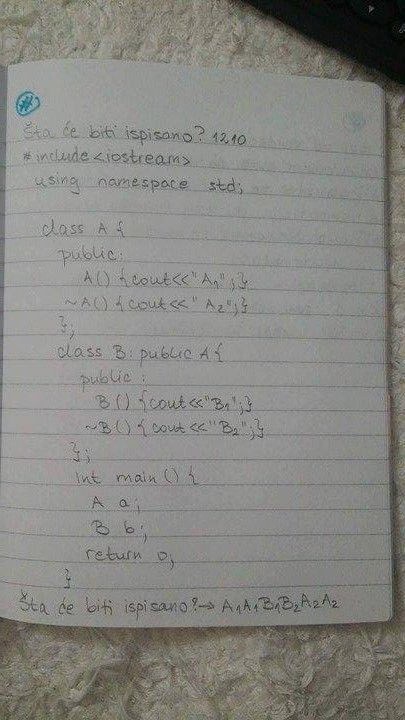 #
Šta će biti ispisano? 1210
#include <iostream>
using namespace std;
class A {
public:
A() {cout<<"A₁";}
~A() {cout<<"A₂";}
};
class B: public A {
public:
B() {cout<<"B₁";}
~B() {cout<<"B₂";}
};
int main() {
A a;
B b;
return 0;
}
Šta će biti ispisano?→ A₁A₁B₁B₂A₂A₂